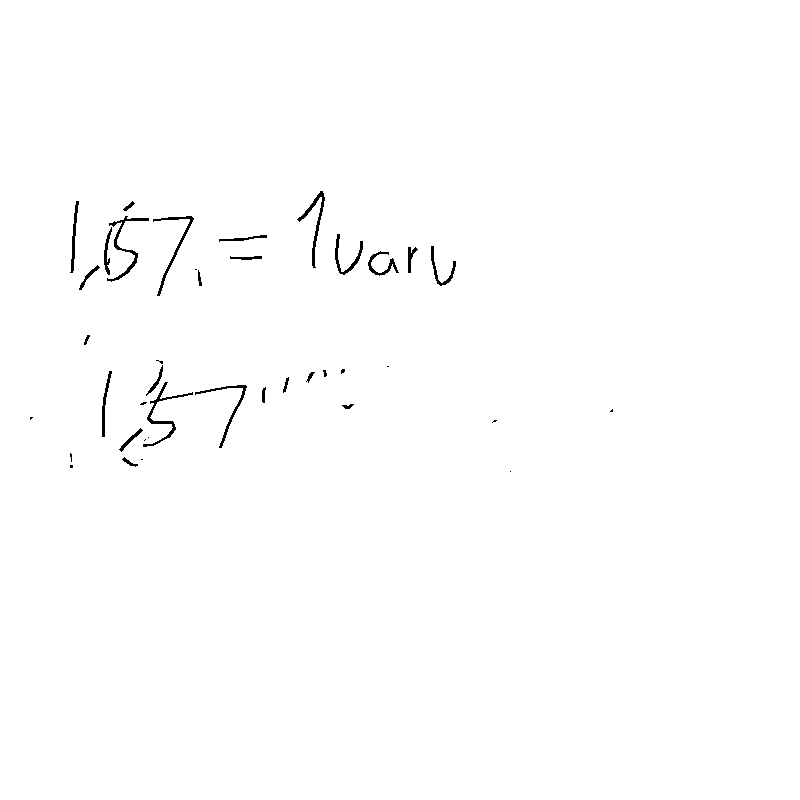 1,57 = 1 varv
1,57